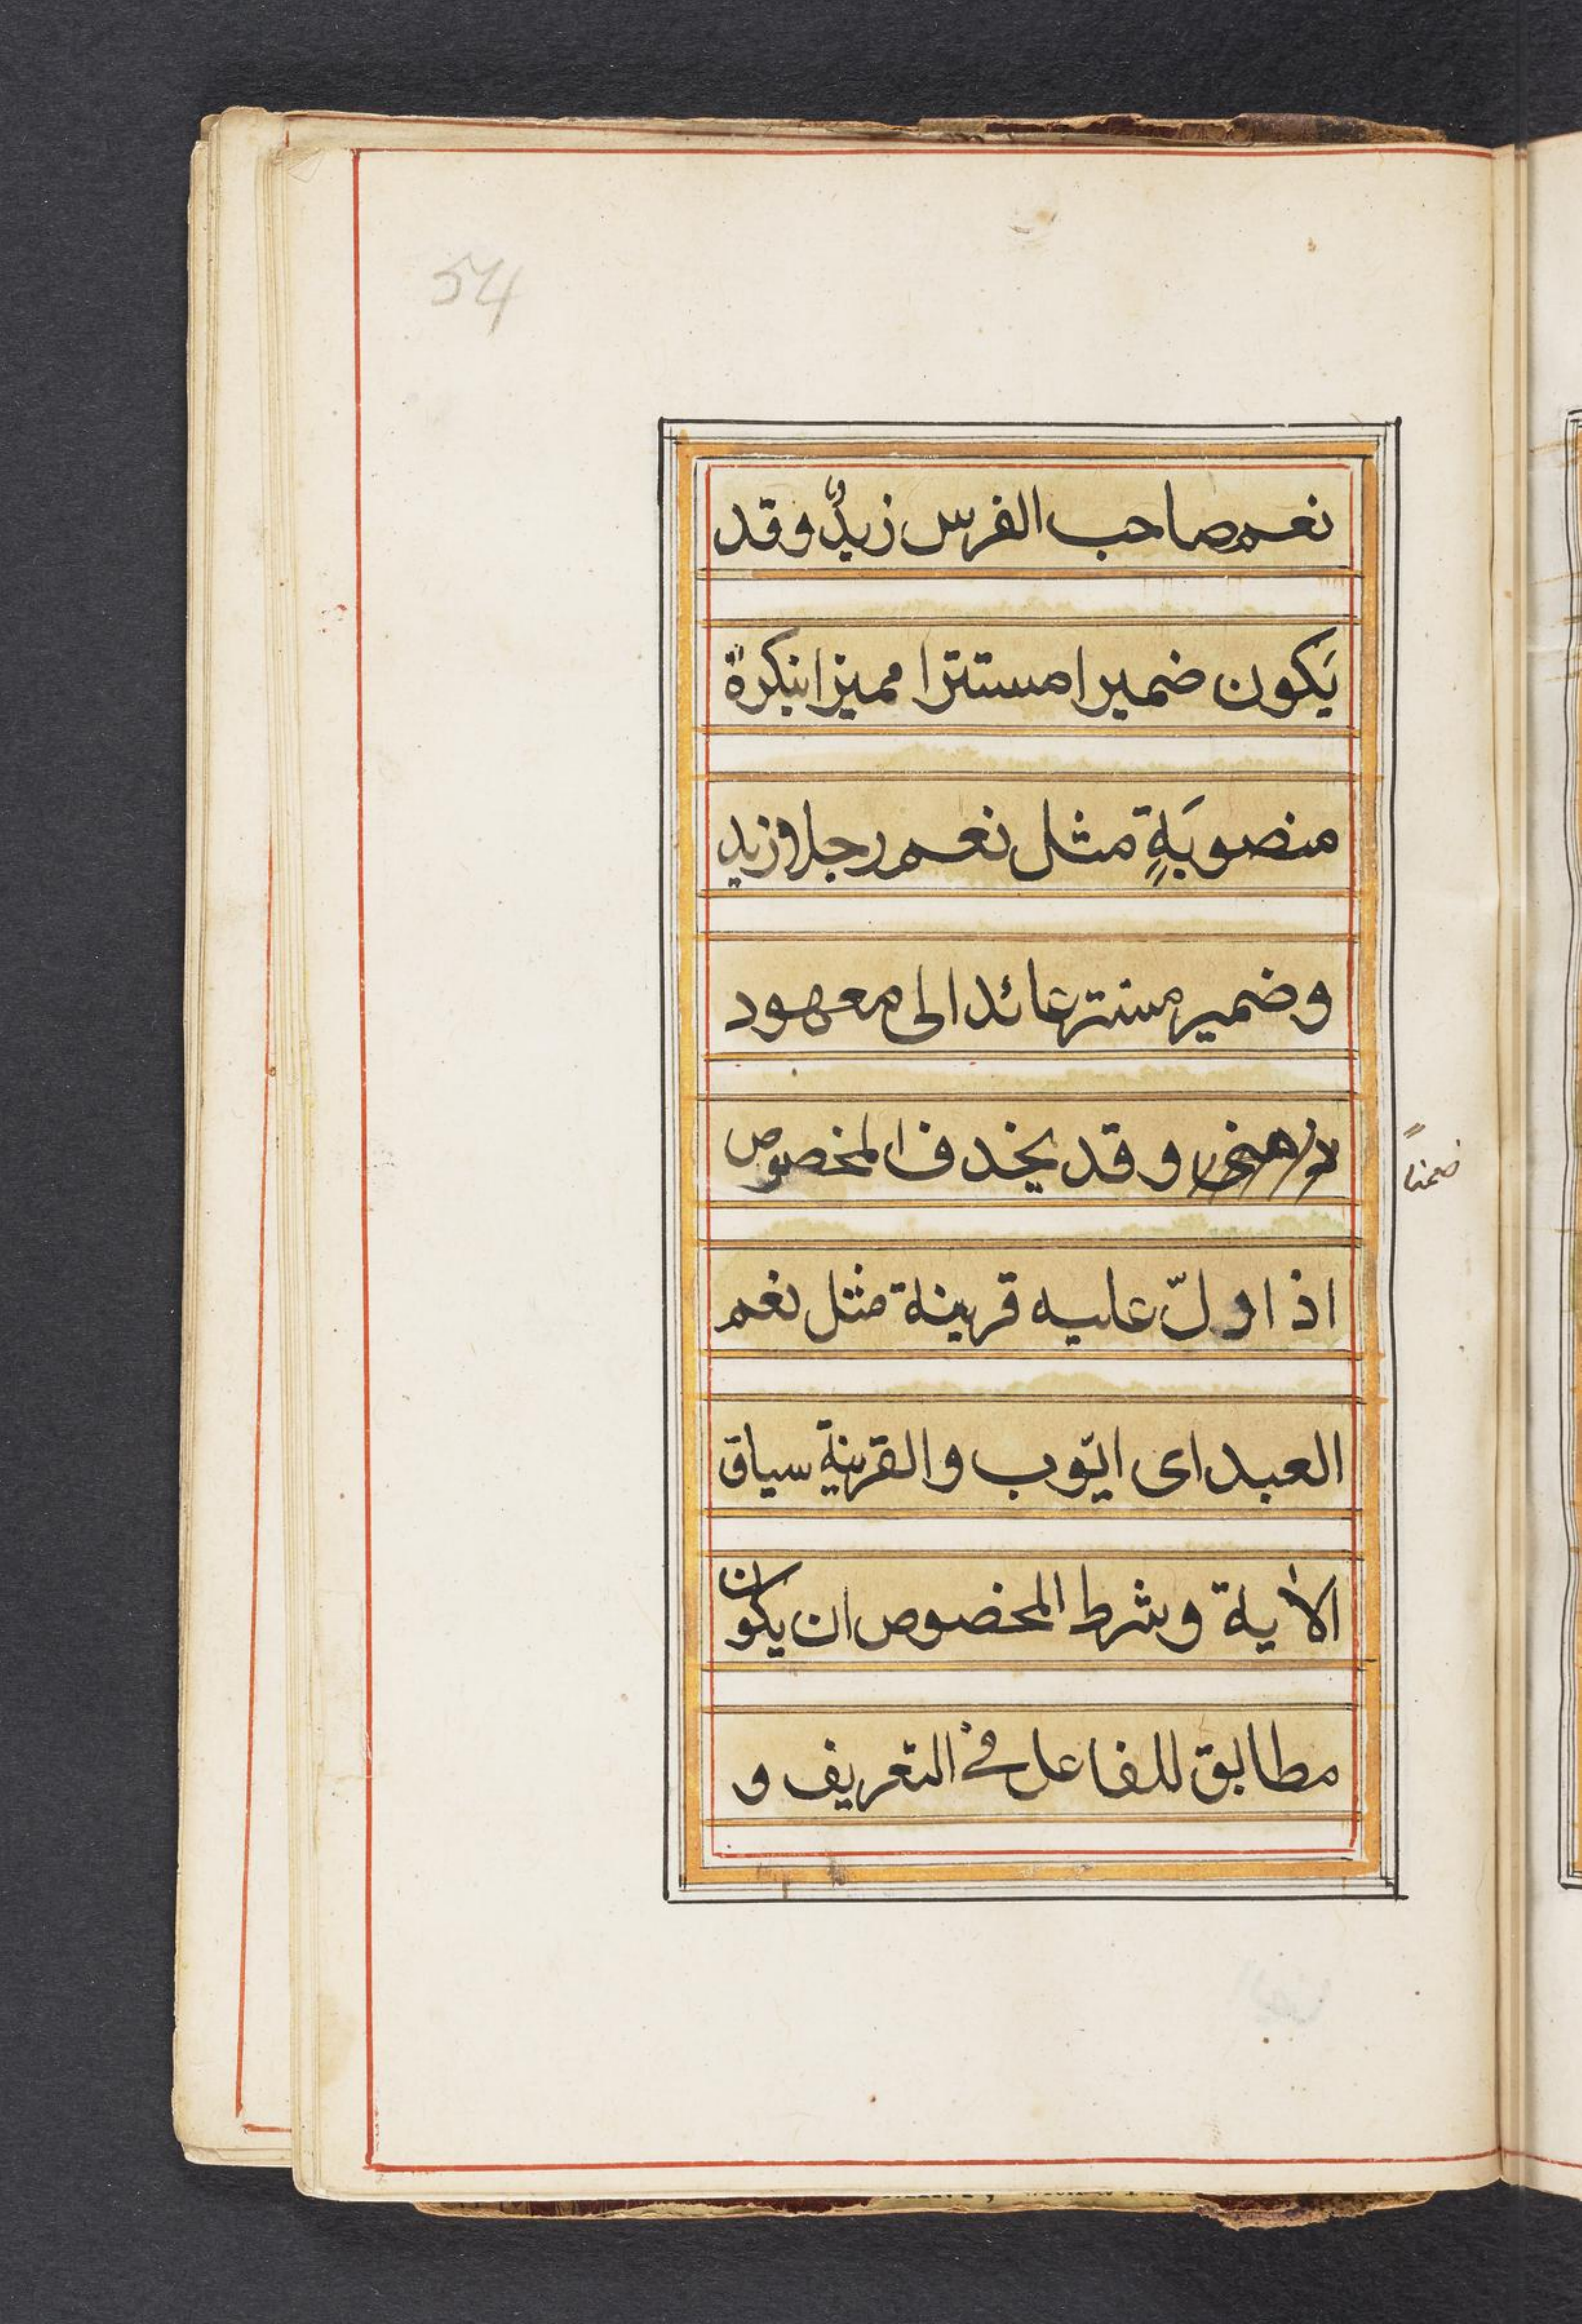 54
نعم صاحب الفرس زيدٌ وقد
يَكون ضميرا مستترا مميزا بنكرةً
منصوبَةٍ مثل نعم رجلا زيد
وضمير مستتر عائد الى معهود
وقد يخذف المخصوص
ضمناً
اذا دلّ عليه قرينة مثل نعم
العبد اى ايّوب والقرينة سياق
الاية وشرط المخصوص ان يكون
مطابق للفاعل فى التعريف و